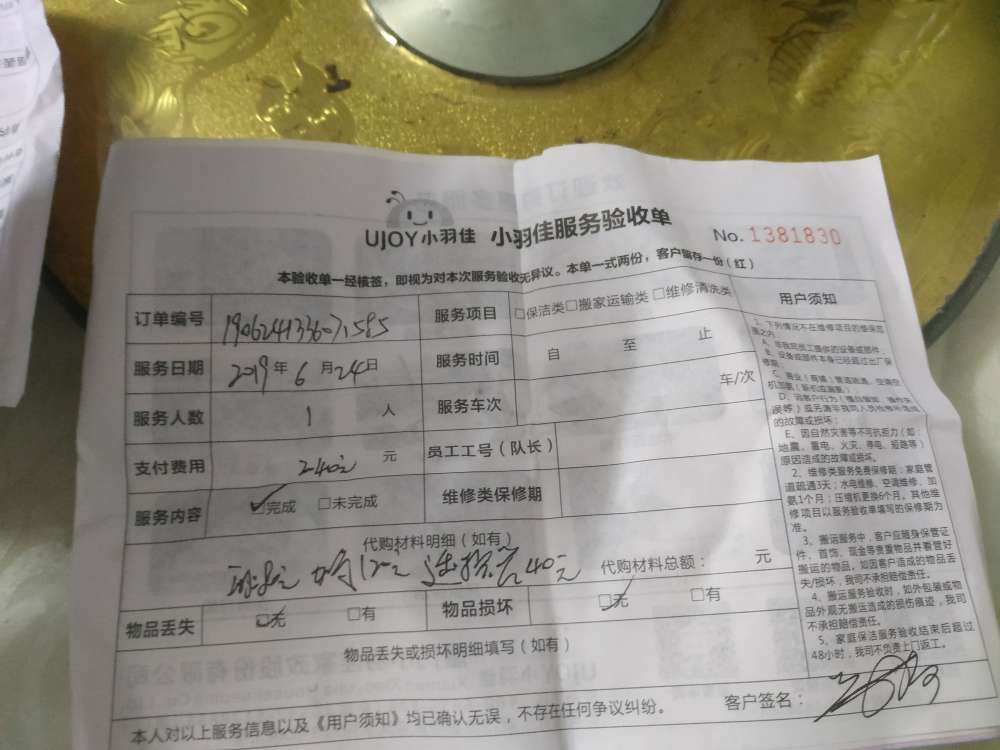 UJOY小羽佳 小羽佳服务验收单
No. 1381830
本验收单一经核签，即视为对本次服务验收无异议。本单一式两份，客户留存一份（红）
订单编号 1906241336071585
服务项目 □保洁类□搬家运输类□维修清洗类
服务日期 2019年6月24日
服务时间 自 至 止
服务人数 1 人
服务车次 车/次
支付费用 240元 元
员工工号（队长）
服务内容 ☑完成 □未完成
维修类保修期
代购材料明细（如有）
40元 代购材料总额： 元
物品丢失 ☑无 □有
物品损坏 ☑无 □有
物品丢失或损坏明细填写（如有）
本人对以上服务信息以及《用户须知》均已确认无误，不存在任何争议纠纷。
客户签名：
用户须知
1、下列情况不在维修项目的维保范
围之内
A、非我司员工提供的设备或部件，
B、设备或部件本身已经超过出厂保
修期
的故障或损坏；
E、因自然灾害等不可抗拒力（如：
地震、雷电、火灾、停电、短路等）
原因造成的故障或损坏。
2、维修类服务免费保修期：家庭管
道疏通3天；水电维修、空调维修、加
氨1个月；压缩机更换6个月。其他维
修项目以服务验收单填写的保修期为
准。
3、搬运服务中，客户应随身保管证
件、首饰、现金等贵重物品并看管好
搬运的物品。如因客户造成的物品丢
失/损坏，我司不承担赔偿责任。
4、搬运服务验收时，如外包装或物
品外观无搬运造成的损伤痕迹，我司
不承担赔偿责任。
5、家庭保洁服务验收结束后超过
48小时，我司不负责上门返工。